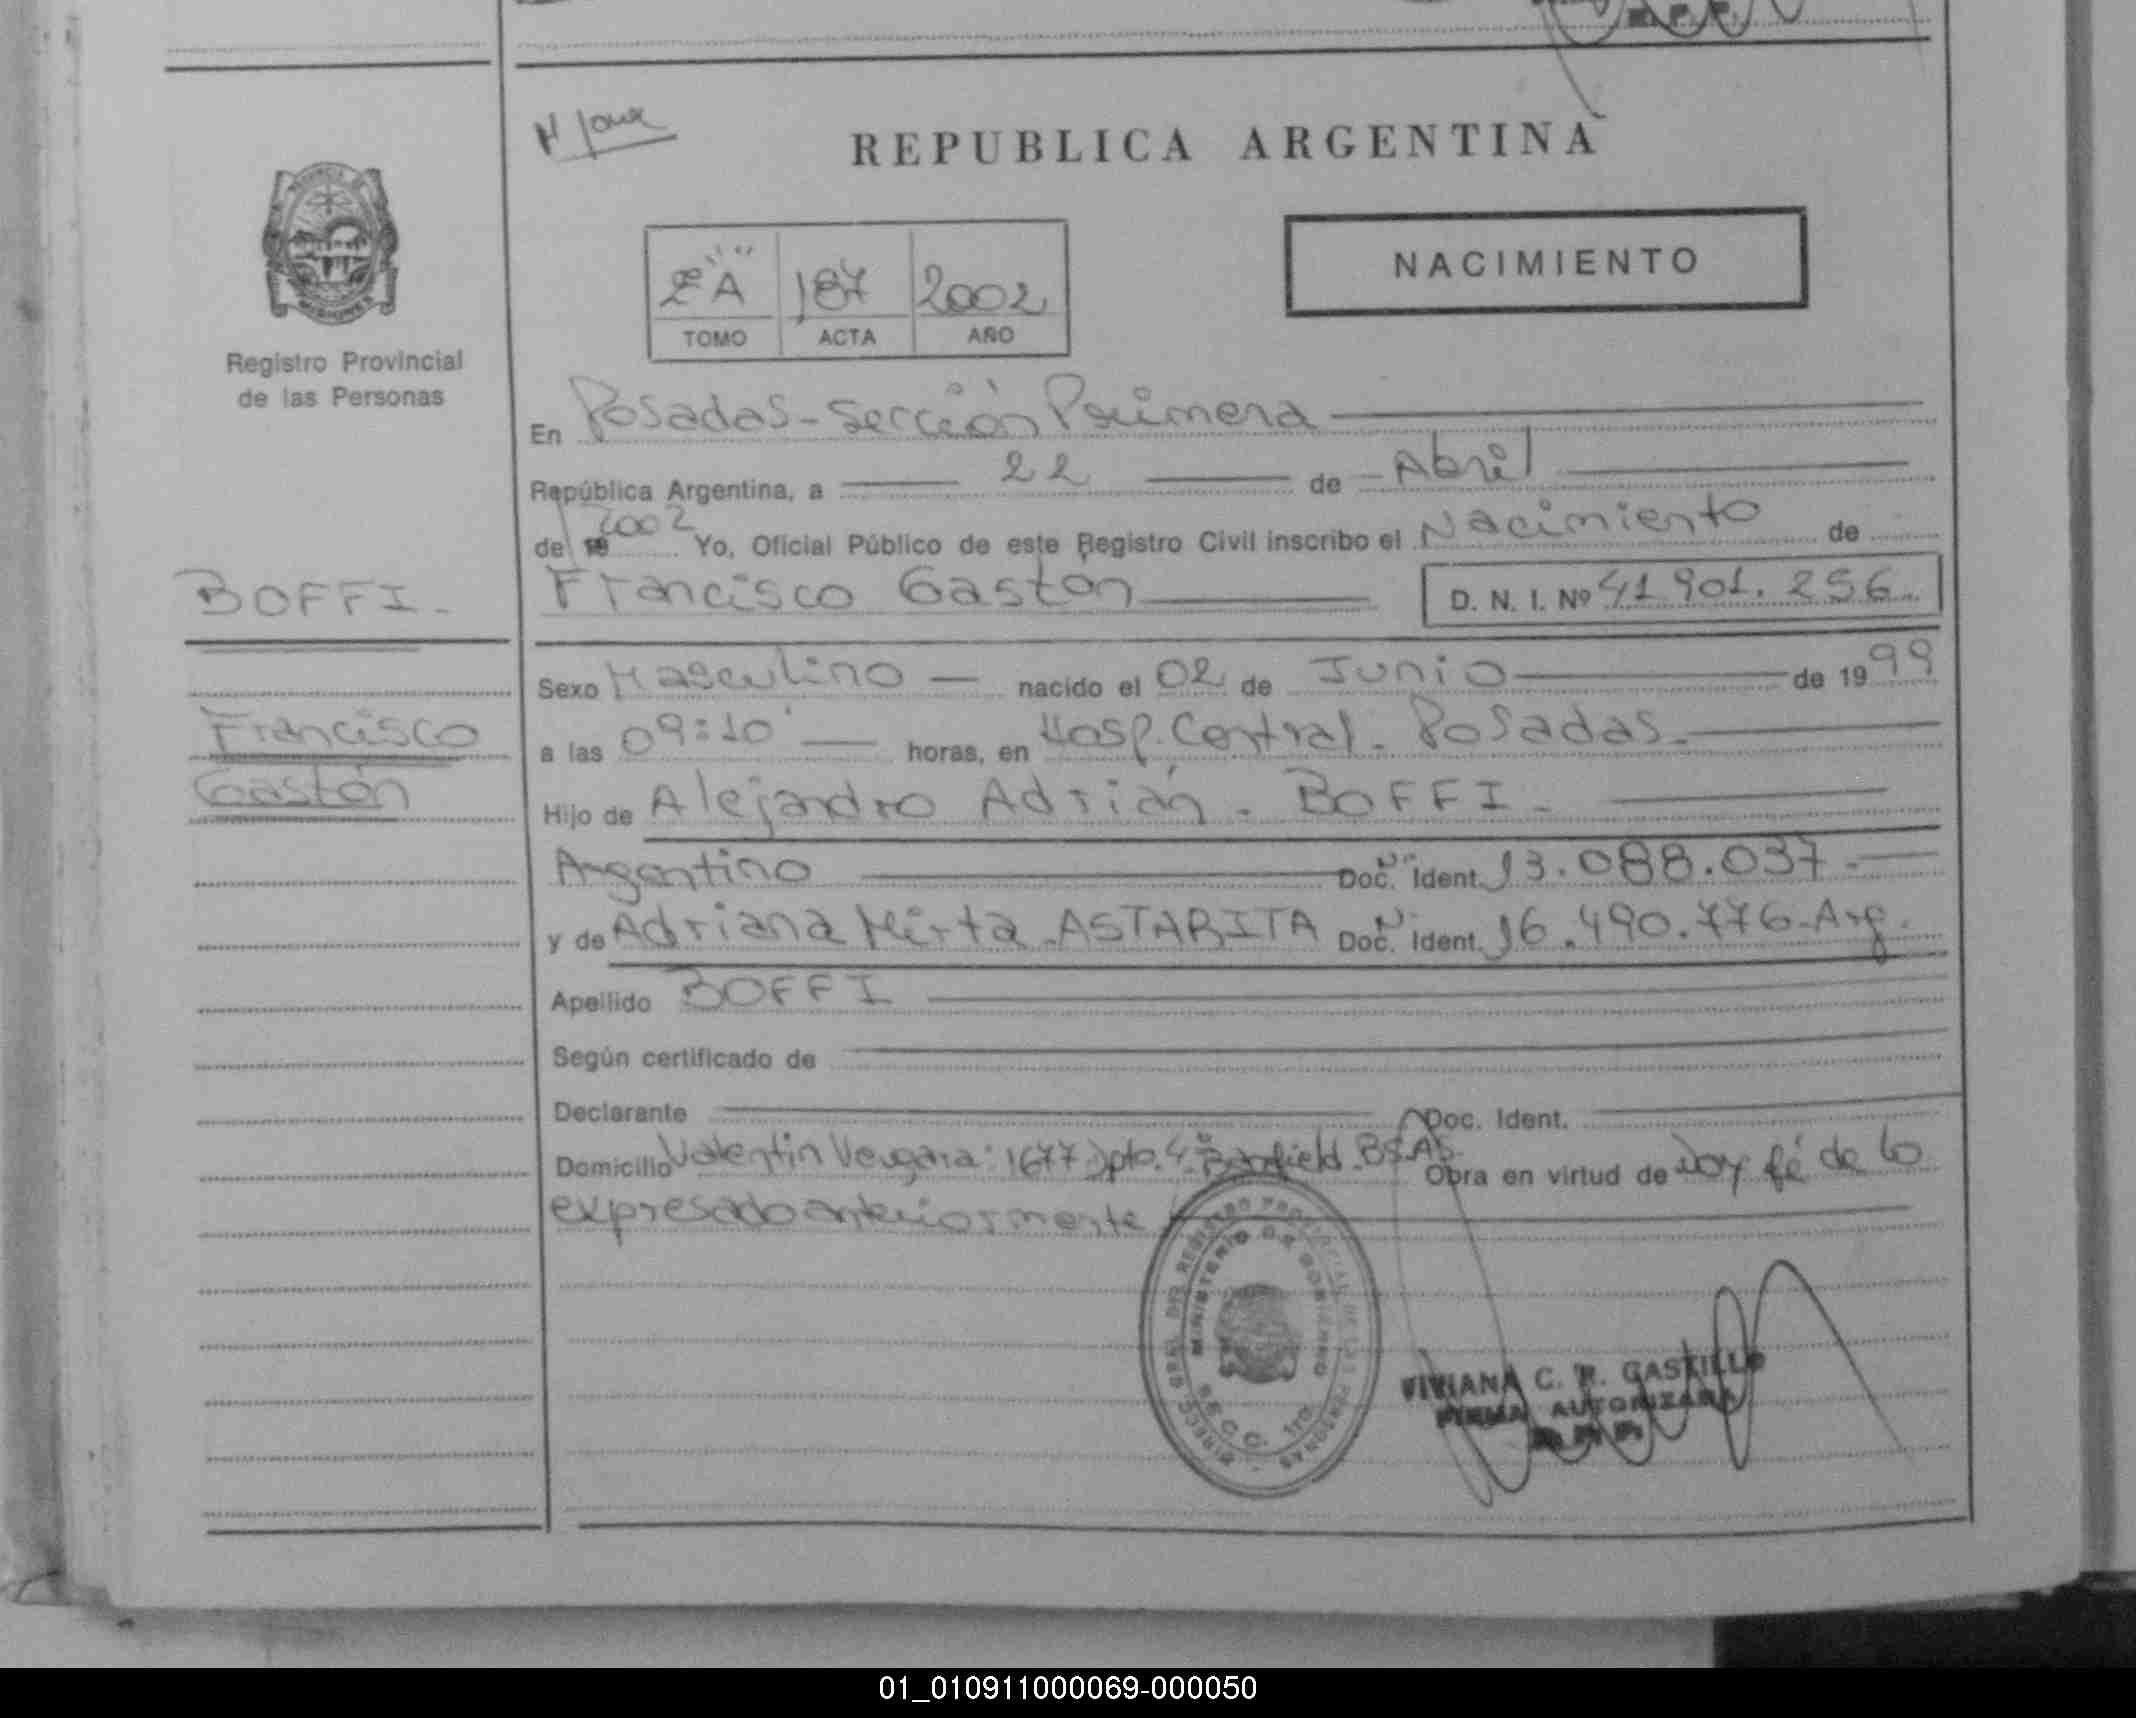 REPUBLICA ARGENTINA
NACIMIENTO
2º "A" 187 2002
TOMO ACTA AÑO
Registro Provincial
de las Personas
En Posadas - Sección Primera
República Argentina, a 22 de Abril
de 19 2002 Yo, Oficial Público de este Registro Civil inscribo el Nacimiento de
BOFFI.
Francisco Gastón D. N. I. Nº 41.901.256.
Sexo Masculino nacido el 02 de Junio de 1999
Francisco
Gastón
a las 09:10' horas, en Hosp. Central. Posadas.
Hijo de Alejandro Adrián. BOFFI.
Argentino Doc. Ident. 13.088.037.
y de Adriana Mirta ASTARITA Doc. Ident. 16.490.776-Arg.
Apellido BOFFI
Según certificado de
Declarante Doc. Ident.
Domicilio Valentin Vergara: 1677 Dpto. 4 Banfield. BS.AS. Obra en virtud de Doy fé de lo
expresado anteriormente
DIREC. GRAL. DEL REGISTRO PROVINCIAL DE LAS PERSONAS
MINISTERIO DE GOBIERNO
SECC. 1ra.
VIVIANA C. R. CASTILLO
FIRMA AUTORIZADA
01_010911000069-000050